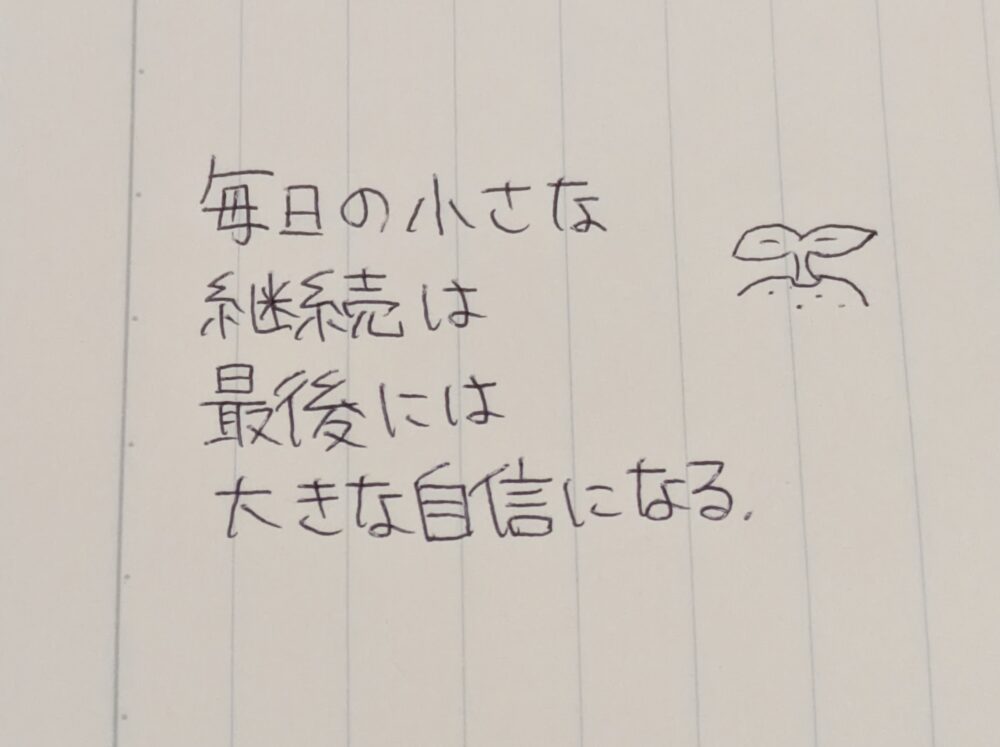 毎日の小さな
継続は
最後には
大きな自信になる.